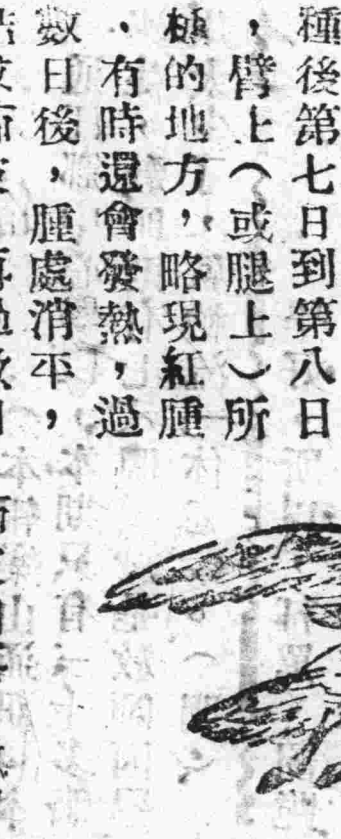 種後第七日到第八日
，臂上（或腿上）所
種的地方，略現紅腫
、有時還會發熱，過
數日後，腫處消平，